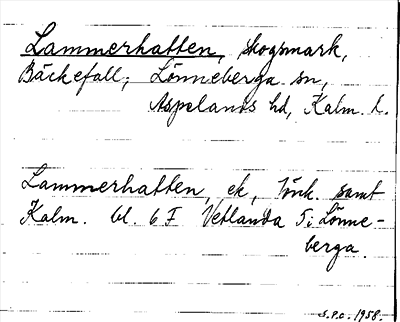 Lammerhatten, skogsmark,
Bäckefall, Lönneberga sn,
Aspelands hd, Kalm. l.
Lammerhatten, ek, Jönk. samt
Kalm. bl. 6 F Vetlanda T; Lönne-
berga.
S.P.C. 1958.